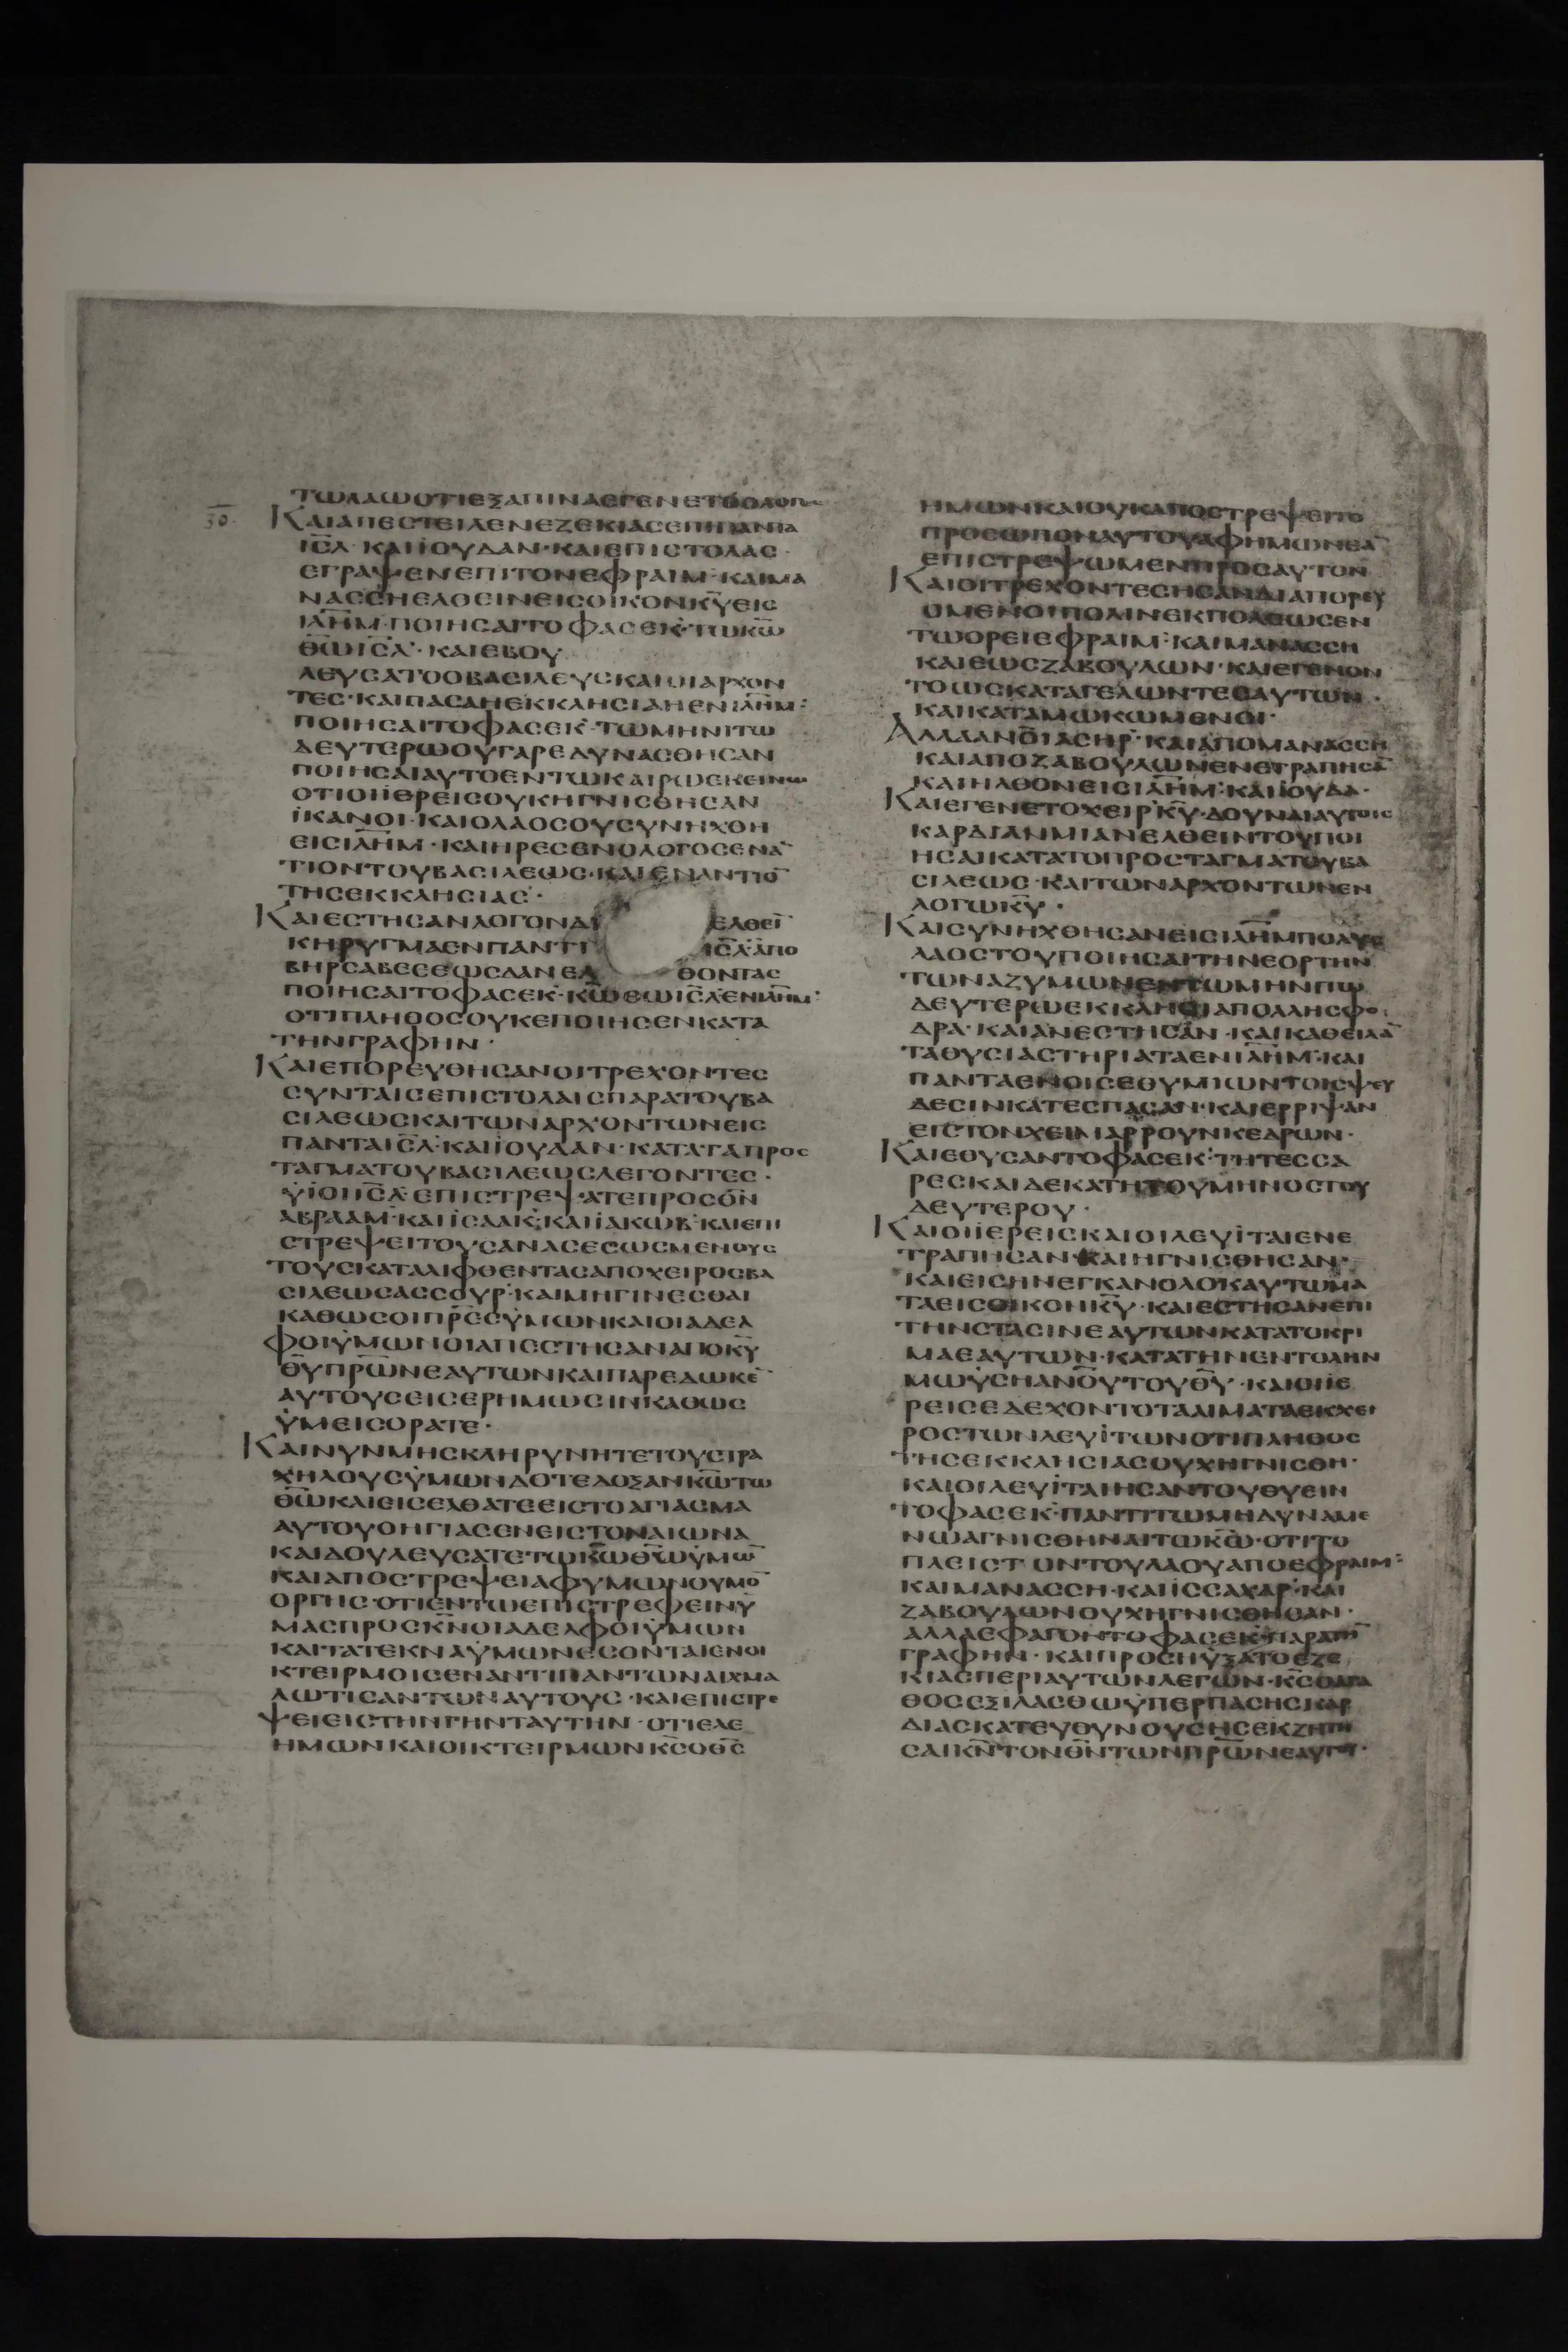 ΤΩΛΑΩΟΤΙΕΞΑΠΙΝΑΕΓΕΝΕΤΟΟΛΟΓΟ
30.
ΚΑΙΑΠΕΣΤΕΙΛΕΝΕΖΕΚΙΑCΕΠΙΠΑΝΤΑ
ΙC̅Λ̅ ΚΑΙΙΟΥΔΑΝ·ΚΑΙΕΠΙCΤΟΛΑC·
ΕΓΡΑΨΕΝΕΠΙΤΟΝΕΦΡΑΙΜ·ΚΑΙΜΑ
ΝΑCCΗΕΛΘCΙΝΕΙCΟΙΚΟΝΚ̅Υ̅ΕΙC
ΙΛ̅Η̅Μ̅·ΠΟΙΗCΑΙΤΟΦΑCΕΚ·ΤΩΚ̅Ω̅
Θ̅Ω̅ΙC̅Λ̅·ΚΑΙΕΒΟΥ
ΛΕΥCΑΤΟΟΒΑCΙΛΕΥCΚΑΙΟΙΑΡΧΟΝ
ΤΕC·ΚΑΙΠΑCΑΗΕΚΚΛΗCΙΑΗΕΝΙΛ̅Η̅Μ̅:
ΠΟΙΗCΑΙΤΟΦΑCΕΚ·ΤΩΜΗΝΙΤΩ
ΔΕΥΤΕΡΩΟΥΓΑΡΕΔΥΝΑCΘΗCΑΝ
ΠΟΙΗCΑΙΑΥΤΟΕΝΤΩΚΑΙΡΩΕΚΕΙΝΩ
ΟΤΙΟΙΪΕΡΕΙCΟΥΚΗΓΝΙCΘΗCΑΝ
ΪΚΑΝΟΙ·ΚΑΙΟΛΑΟCΟΥCΥΝΗΧΘΗ
ΕΙCΙΛ̅Η̅Μ̅·ΚΑΙΗΡΕCΕΝΟΛΟΓΟCΕΝΑ̅
ΤΙΟΝΤΟΥΒΑCΙΛΕΩC·ΚΑΙΕΝΑΝΤΙΟ̅
ΤΗCΕΚΚΛΗCΙΑC·
ΚΑΙΕCΤΗCΑΝΛΟΓΟΝΔΙ ΕΛΘΕΙ̅
ΚΗΡΥΓΜΑΕΝΠΑΝΤΙ ΙC̅Λ̅·ΑΠΟ
ΒΗΡCΑΒΕCΕΩCΔΑΝΕΛ ΘΟΝΤΑC
ΠΟΙΗCΑΙΤΟΦΑCΕΚ·Κ̅Ω̅ΘΕΩΙC̅Λ̅ΕΝΙΛ̅Η̅Μ̅·
ΟΤΙΠΛΗΘΟCΟΥΚΕΠΟΙΗCΕΝΚΑΤΑ
ΤΗΝΓΡΑΦΗΝ·
ΚΑΙΕΠΟΡΕΥΘΗCΑΝΟΙΤΡΕΧΟΝΤΕC
CΥΝΤΑΙCΕΠΙCΤΟΛΑΙCΠΑΡΑΤΟΥΒΑ
CΙΛΕΩCΚΑΙΤΩΝΑΡΧΟΝΤΩΝΕΙC
ΠΑΝΤΑΙC̅Λ̅·ΚΑΙΙΟΥΔΑΝ·ΚΑΤΑΤΑΠΡΟC
ΤΑΓΜΑΤΟΥΒΑCΙΛΕΩCΛΕΓΟΝΤΕC·
ΫΙΟΙΙC̅Λ̅·ΕΠΙCΤΡΕΨΑΤΕΠΡΟCΘ̅Ν̅
ΑΒΡΑΑΜ·ΚΑΙΪCΑΑΚ·ΚΑΙΪΑΚΩΒ·ΚΑΙΕΠΙ
CΤΡΕΨΕΙΤΟΥCΑΝΑCΕCΩCΜΕΝΟΥC
ΤΟΥCΚΑΤΑΛΙΦΘΕΝΤΑCΑΠΟΧΕΙΡΟCΒΑ
CΙΛΕΩCΑCCΟΥΡ·ΚΑΙΜΗΓΙΝΕCΘΑΙ
ΚΑΘΩCΟΙΠ̅Ρ̅Ε̅C̅ΫΜΩΝΚΑΙΟΙΑΔΕΛ
ΦΟΙΫΜΩΝΟΙΑΠΕCΤΗCΑΝΑΠΟΚ̅Υ̅
Θ̅Υ̅Π̅Ρ̅Ω̅Ν̅ΕΑΥΤΩΝΚΑΙΠΑΡΕΔΩΚΕ̅
ΑΥΤΟΥCΕΙCΕΡΗΜΩCΙΝΚΑΘΩC
ΫΜΕΙCΟΡΑΤΕ·
ΚΑΙΝΥΝΜΗCΚΛΗΡΥΝΗΤΕΤΟΥCΤΡΑ
ΧΗΛΟΥCΫΜΩΝΔΟΤΕΔΟΞΑΝΚ̅Ω̅ΤΩ
Θ̅Ω̅ΚΑΙΕΙCΕΛΘΑΤΕΕΙCΤΟΑΓΙΑCΜΑ
ΑΥΤΟΥΟΗΓΙΑCΕΝΕΙCΤΟΝΑΙΩΝΑ
ΚΑΙΔΟΥΛΕΥCΑΤΕΤΩΚ̅Ω̅Θ̅Ω̅ΫΜΩ̅
ΚΑΙΑΠΟCΤΡΕΨΕΙΑΦΥΜΩΝΘΥΜΟ̅
ΟΡΓΗC·ΟΤΙΕΝΤΩΕΠΙCΤΡΕΦΕΙΝΫ
ΜΑCΠΡΟCΚ̅Ν̅ΟΙΑΔΕΛΦΟΙΫΜΩΝ
ΚΑΙΤΑΤΕΚΝΑΫΜΩΝΕCΟΝΤΑΙΕΝΟΙ
ΚΤΕΙΡΜΟΙCΕΝΑΝΤΙΠΑΝΤΩΝΑΙΧΜΑ
ΛΩΤΙCΑΝΤΩΝΑΥΤΟΥC·ΚΑΙΕΠΙCΤΡΕ
ΨΕΙΕΙCΤΗΝΓΗΝΤΑΥΤΗΝ·ΟΤΙΕΛΕ
ΗΜΩΝΚΑΙΟΙΚΤΕΙΡΜΩΝΚ̅C̅ΟΘ̅C̅
ΗΜΩΝΚΑΙΟΥΚΑΠΟCΤΡΕΨΕΙΤΟ
ΠΡΟCΩΠΟΝΑΥΤΟΥΑΦΗΜΩΝΕΑ̅
ΕΠΙCΤΡΕΨΩΜΕΝΠΡΟCΑΥΤΟΝ
ΚΑΙΟΙΤΡΕΧΟΝΤΕCΗCΑΝΔΙΑΠΟΡΕΥ
ΟΜΕΝΟΙΠΟΛΙΝΕΚΠΟΛΕΩCΕΝ
ΤΩΟΡΕΙΕΦΡΑΙΜ·ΚΑΙΜΑΝΑCCΗ
ΚΑΙΕΩCΖΑΒΟΥΛΩΝ·ΚΑΙΕΓΕΝΟΝ
ΤΟΩCΚΑΤΑΓΕΛΩΝΤΕCΑΥΤΩΝ·
ΚΑΙΚΑΤΑΜΩΚΩΜΕΝΟΙ·
ΑΛΛΑΑΝΟ̅Ι̅ΑCΗΡ·ΚΑΙΑΠΟΜΑΝΑCCΗ
ΚΑΙΑΠΟΖΑΒΟΥΛΩΝΕΝΕΤΡΑΠΗCΑ̅
ΚΑΙΗΛΘΟΝΕΙCΙΛ̅Η̅Μ̅·ΚΑΙΪΟΥΔΑ·
ΚΑΙΕΓΕΝΕΤΟΧΕΙΡΚ̅Υ̅·ΔΟΥΝΑΙΑΥΤΟΙC
ΚΑΡΔΙΑΝΜΙΑΝΕΛΘΕΙΝΤΟΥΠΟΙ
ΗCΑΙΚΑΤΑΤΟΠΡΟCΤΑΓΜΑΤΟΥΒΑ
CΙΛΕΩC·ΚΑΙΤΩΝΑΡΧΟΝΤΩΝΕΝ
ΛΟΓΩΚ̅Υ̅·
ΚΑΙCΥΝΗΧΘΗCΑΝΕΙCΙΛ̅Η̅Μ̅ΠΟΛΥC
ΛΑΟCΤΟΥΠΟΙΗCΑΙΤΗΝΕΟΡΤΗΝ
ΤΩΝΑΖΥΜΩΝΕΝΤΩΜΗΝΙΤΩ
ΔΕΥΤΕΡΩΕΚΚΛΗCΙΑΠΟΛΛΗCΦΟ
ΔΡΑ·ΚΑΙΑΝΕCΤΗCΑΝ·ΚΑΙΚΑΘΕΙΛΑ̅
ΤΑΘΥCΙΑCΤΗΡΙΑΤΑΕΝΙΛ̅Η̅Μ̅·ΚΑΙ
ΠΑΝΤΑΕΝΟΙCΕΘΥΜΙΩΝΤΟΙCΨΕΥ
ΔΕCΙΝΚΑΤΕCΠΑCΑΝ·ΚΑΙΕΡΡΙΨΑΝ
ΕΙCΤΟΝΧΕΙΜΑΡΡΟΥΝΚΕΔΡΩΝ·
ΚΑΙΕΘΥCΑΝΤΟΦΑCΕΚ·ΤΗΤΕCCΑ
ΡΕCΚΑΙΔΕΚΑΤΗΤΟΥΜΗΝΟCΤΟΥ
ΔΕΥΤΕΡΟΥ·
ΚΑΙΟΙΪΕΡΕΙCΚΑΙΟΙΛΕΥΪΤΑΙΕΝΕ
ΤΡΑΠΗCΑΝΚΑΙΗΓΝΙCΘΗCΑΝ·
ΚΑΙΕΙCΗΝΕΓΚΑΝΟΛΟΚΑΥΤΩΜΑ
ΤΑΕΙCΟΙΚΟΝΚ̅Υ̅·ΚΑΙΕCΤΗCΑΝΕΠΙ
ΤΗΝCΤΑCΙΝΕΑΥΤΩΝΚΑΤΑΤΟΚΡΙ
ΜΑΕΑΥΤΩΝ·ΚΑΤΑΤΗΝΕΝΤΟΛΗΝ
ΜΩΥCΗΑΝ̅Ο̅Υ̅ΤΟΥΘ̅Υ̅·ΚΑΙΟΙΪΕ
ΡΕΙCΕΔΕΧΟΝΤΟΤΑΑΙΜΑΤΑΕΚΧΕΙ
ΡΟCΤΩΝΛΕΥΪΤΩΝΟΤΙΠΛΗΘΟC
ΤΗCΕΚΚΛΗCΙΑCΟΥΧΗΓΝΙCΘΗ·
ΚΑΙΟΙΛΕΥΪΤΑΙΗCΑΝΤΟΥΘΥΕΙΝ
ΤΟΦΑCΕΚ·ΠΑΝΤΙΤΩΜΗΔΥΝΑΜΕ
ΝΩΑΓΝΙCΘΗΝΑΙΤΩΚ̅Ω̅·ΟΤΙΤΟ
ΠΛΕΙCΤΟΝΤΟΥΛΑΟΥΑΠΟΕΦΡΑΙΜ:
ΚΑΙΜΑΝΑCCΗ·ΚΑΙΪCCΑΧΑΡ·ΚΑΙ
ΖΑΒΟΥΛΩΝΟΥΧΗΓΝΙCΘΗCΑΝ·
ΑΛΛΑΕΦΑΓΟΝΤΟΦΑCΕΚ·ΠΑΡΑΤΗ̅
ΓΡΑΦΗΝ·ΚΑΙΠΡΟCΗΥΞΑΤΟΕΖΕ
ΚΙΑCΠΕΡΙΑΥΤΩΝΛΕΓΩΝ·Κ̅C̅ΟΑΓΑ
ΘΟCΕΞΙΛΑCΘΩΫΠΕΡΠΑCΗCΚΑΡ
ΔΙΑCΚΑΤΕΥΘΥΝΟΥCΗCΕΚΖΗΤΗ
CΑΙΚ̅Ν̅ΤΟΝΘ̅Ν̅ΤΩΝΠ̅Ρ̅Ω̅Ν̅ΕΑΥΤΩ̅·